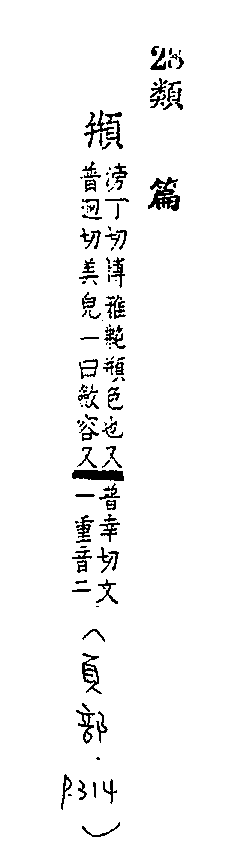 28類篇
頩
滂丁切博雅艴頩色也又
普迥切美皃一曰斂容又
普幸切文
一重音二
（頁部．P.314）